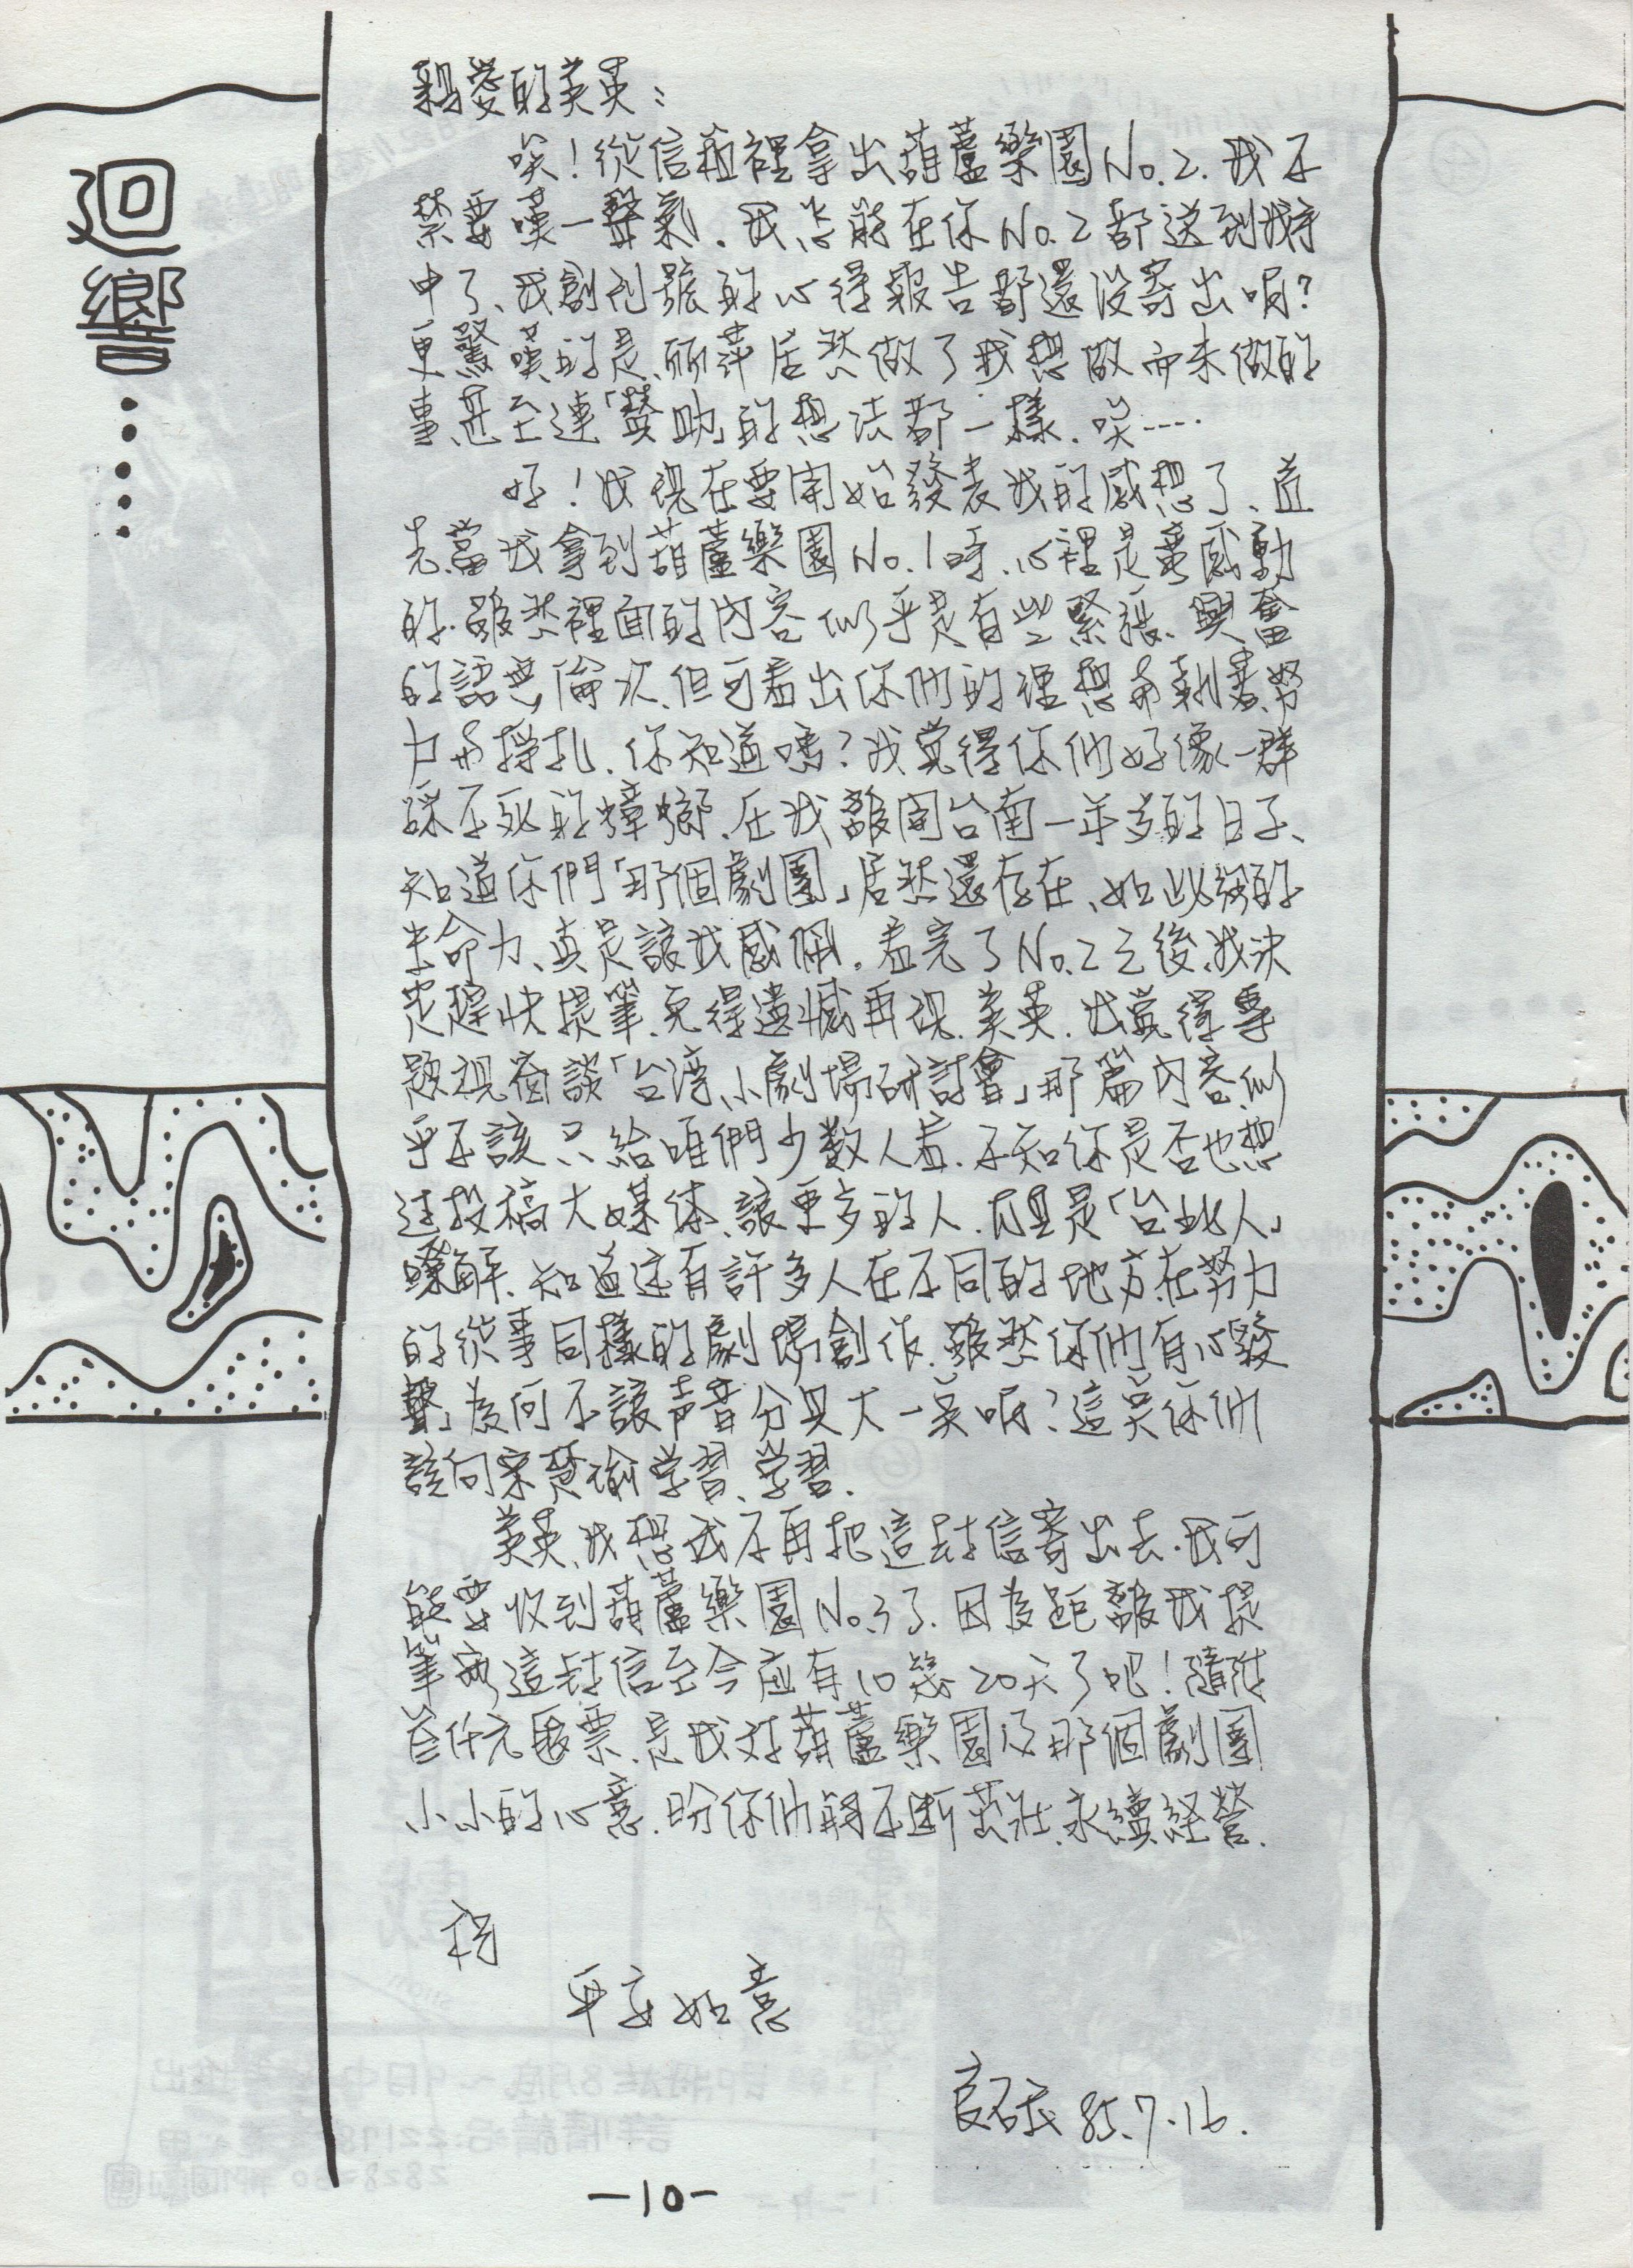 迴響‧‧‧‧‧
親愛的美英：
唉！從信箱裡拿出葫蘆樂園No.2.我不
禁要嘆一聲氣.我怎能在你No.2都送到我手
中了、我創刊號的心得報告都還沒寄出呢？
更驚嘆的是、丽萍居然做了我想做而未做的
事、甚至連「贊助」的想法都一樣.唉……
好！我現在要開始發表我的感想了、首
先、當我拿到葫蘆樂園No.1時、心裡是蠻感動
的.雖然裡面的內容似乎是有些緊張、興奮
的語無倫次、但可看出你們的理想和執著、努
力和掙扎、你知道嗎？我覺得你們好像一群
踩不死的蟑螂、在我離開台南一年多的日子、
知道你們「那個劇團」居然還存在、如此強的
生命力、真是讓我感佩.看完了No.2之後、我決
定趕快提筆、免得遺憾再現.美英.我覺得專
題視窗談「台湾小劇場研討會」那篇內容、似
乎不該只給咱們少数人看.不知你是否也想
过投稿大媒体、讓更多的人.尤其是「台北人」
瞭解、知道还有許多人在不同的地方在努力
的從事同樣的劇場創作.雖然你們有心發
聲、為何不讓声音分貝大一点呢？這点你們
該向宋楚瑜学習、学習.
美英、我想我不再把這封信寄出去.我可
能要收到葫蘆樂園No.3了.因為距離我提
筆寫這封信至今應有10幾20天了吧！隨附
叁仟元匯票.是我对葫蘆樂園及那個劇團
小小的心意.盼你們能不斷茁壯、永續経營.
祝
平安如意
85.7.16.
—10—